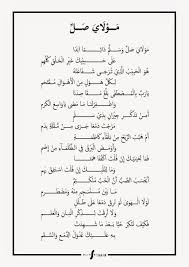 مَوْلَايَ صَلِّ
مَوْلَايَ صَلِّ وَسَلِّمْ دَائِمًا أَبَدًا
عَلَى حَبِيبِكَ خَيْرِ الْخَلْقِ كُلِّهِمِ
هُوَ الْحَبِيبُ الَّذِي تُرْجَى شَفَاعَتُهُ
لِكُلِّ هَوْلٍ مِنَ الْأَهْوَالِ مُقْتَحِمِ
يَارَبِّ بِالْمُصْطَفَى بَلِّغْ مَقَاصِدَنَا
وَاغْفِرْ لَنَا مَا مَضَى يَا وَاسِعَ الْكَرَمِ
أَمِنْ تَذَكُّرِ جِيرَانٍ بِذِي سَلَمِ
مَزَجْتَ دَمْعًا جَرَى مِنْ مُقْلَةٍ بِدَمِ
أَمْ هَبَّتِ الرِّيحُ مِنْ تِلْقَاءِ كَاظِمَةٍ
وَأَوْمَضَ الْبَرْقُ فِي الظَّلْمَاءِ مِنْ إِضَمِ
فَمَا لِعَيْنَيْكَ إِنْ قُلْتَ اكْفُفَا هَمَتَا
وَمَا لِقَلْبِكَ إِنْ قُلْتَ اسْتَفِقْ يَهِمِ
أَيَحْسَبُ الصَّبُّ أَنَّ الْحُبَّ مُنْكَتِمٌ
مَا بَيْنَ مُنْسَجِمٍ مِنْهُ وَمُضْطَرِمِ
لَوْلَا الْهَوَى لَمْ تُرِقْ دَمْعًا عَلَى طَلَلٍ
وَلَا أَرِقْتَ لِذِكْرِ الْبَانِ وَالْعَلَمِ
فَكَيْفَ تُنْكِرُ حُبًّا بَعْدَمَا شَهِدَتْ
بِهِ عَلَيْكَ عُدُولُ الدَّمْعِ وَالسَّقَمِ